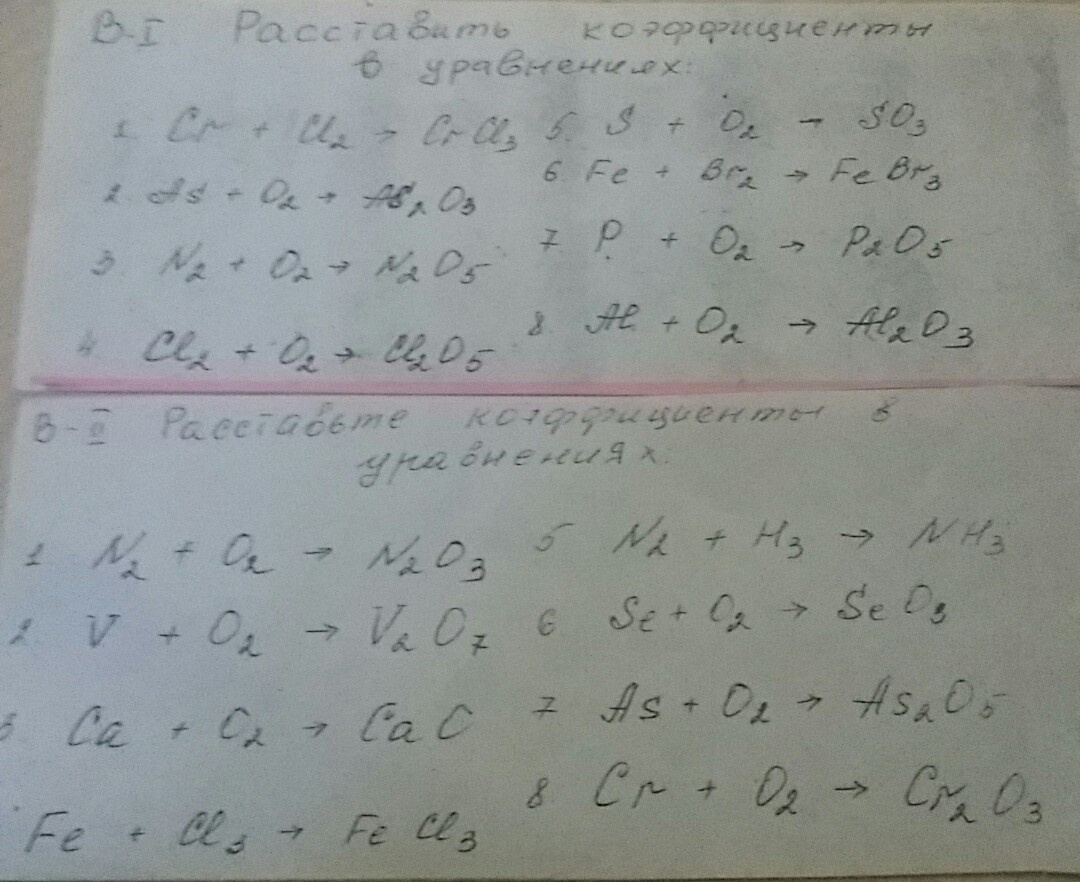 В-I Расставить коэффициенты
в уравнениях:
1. Cr + Cl₂ → CrCl₃
2. As + O₂ → As₂O₃
3. N₂ + O₂ → N₂O₅
4. Cl₂ + O₂ → Cl₂O₅
5. S + O₂ → SO₃
6 Fe + Br₂ → FeBr₃
7 P + O₂ → P₂O₅
8. Al + O₂ → Al₂O₃
В-II Расставьте коэффициенты в
уравнениях.
1 N₂ + O₂ → N₂O₃
2. V + O₂ → V₂O₇
3 Ca + O₂ → CaO
Fe + Cl₃ → FeCl₃
5 N₂ + H₃ → NH₃
6 Se + O₂ → SeO₃
7 As + O₂ → As₂O₅
8 Cr + O₂ → Cr₂O₃